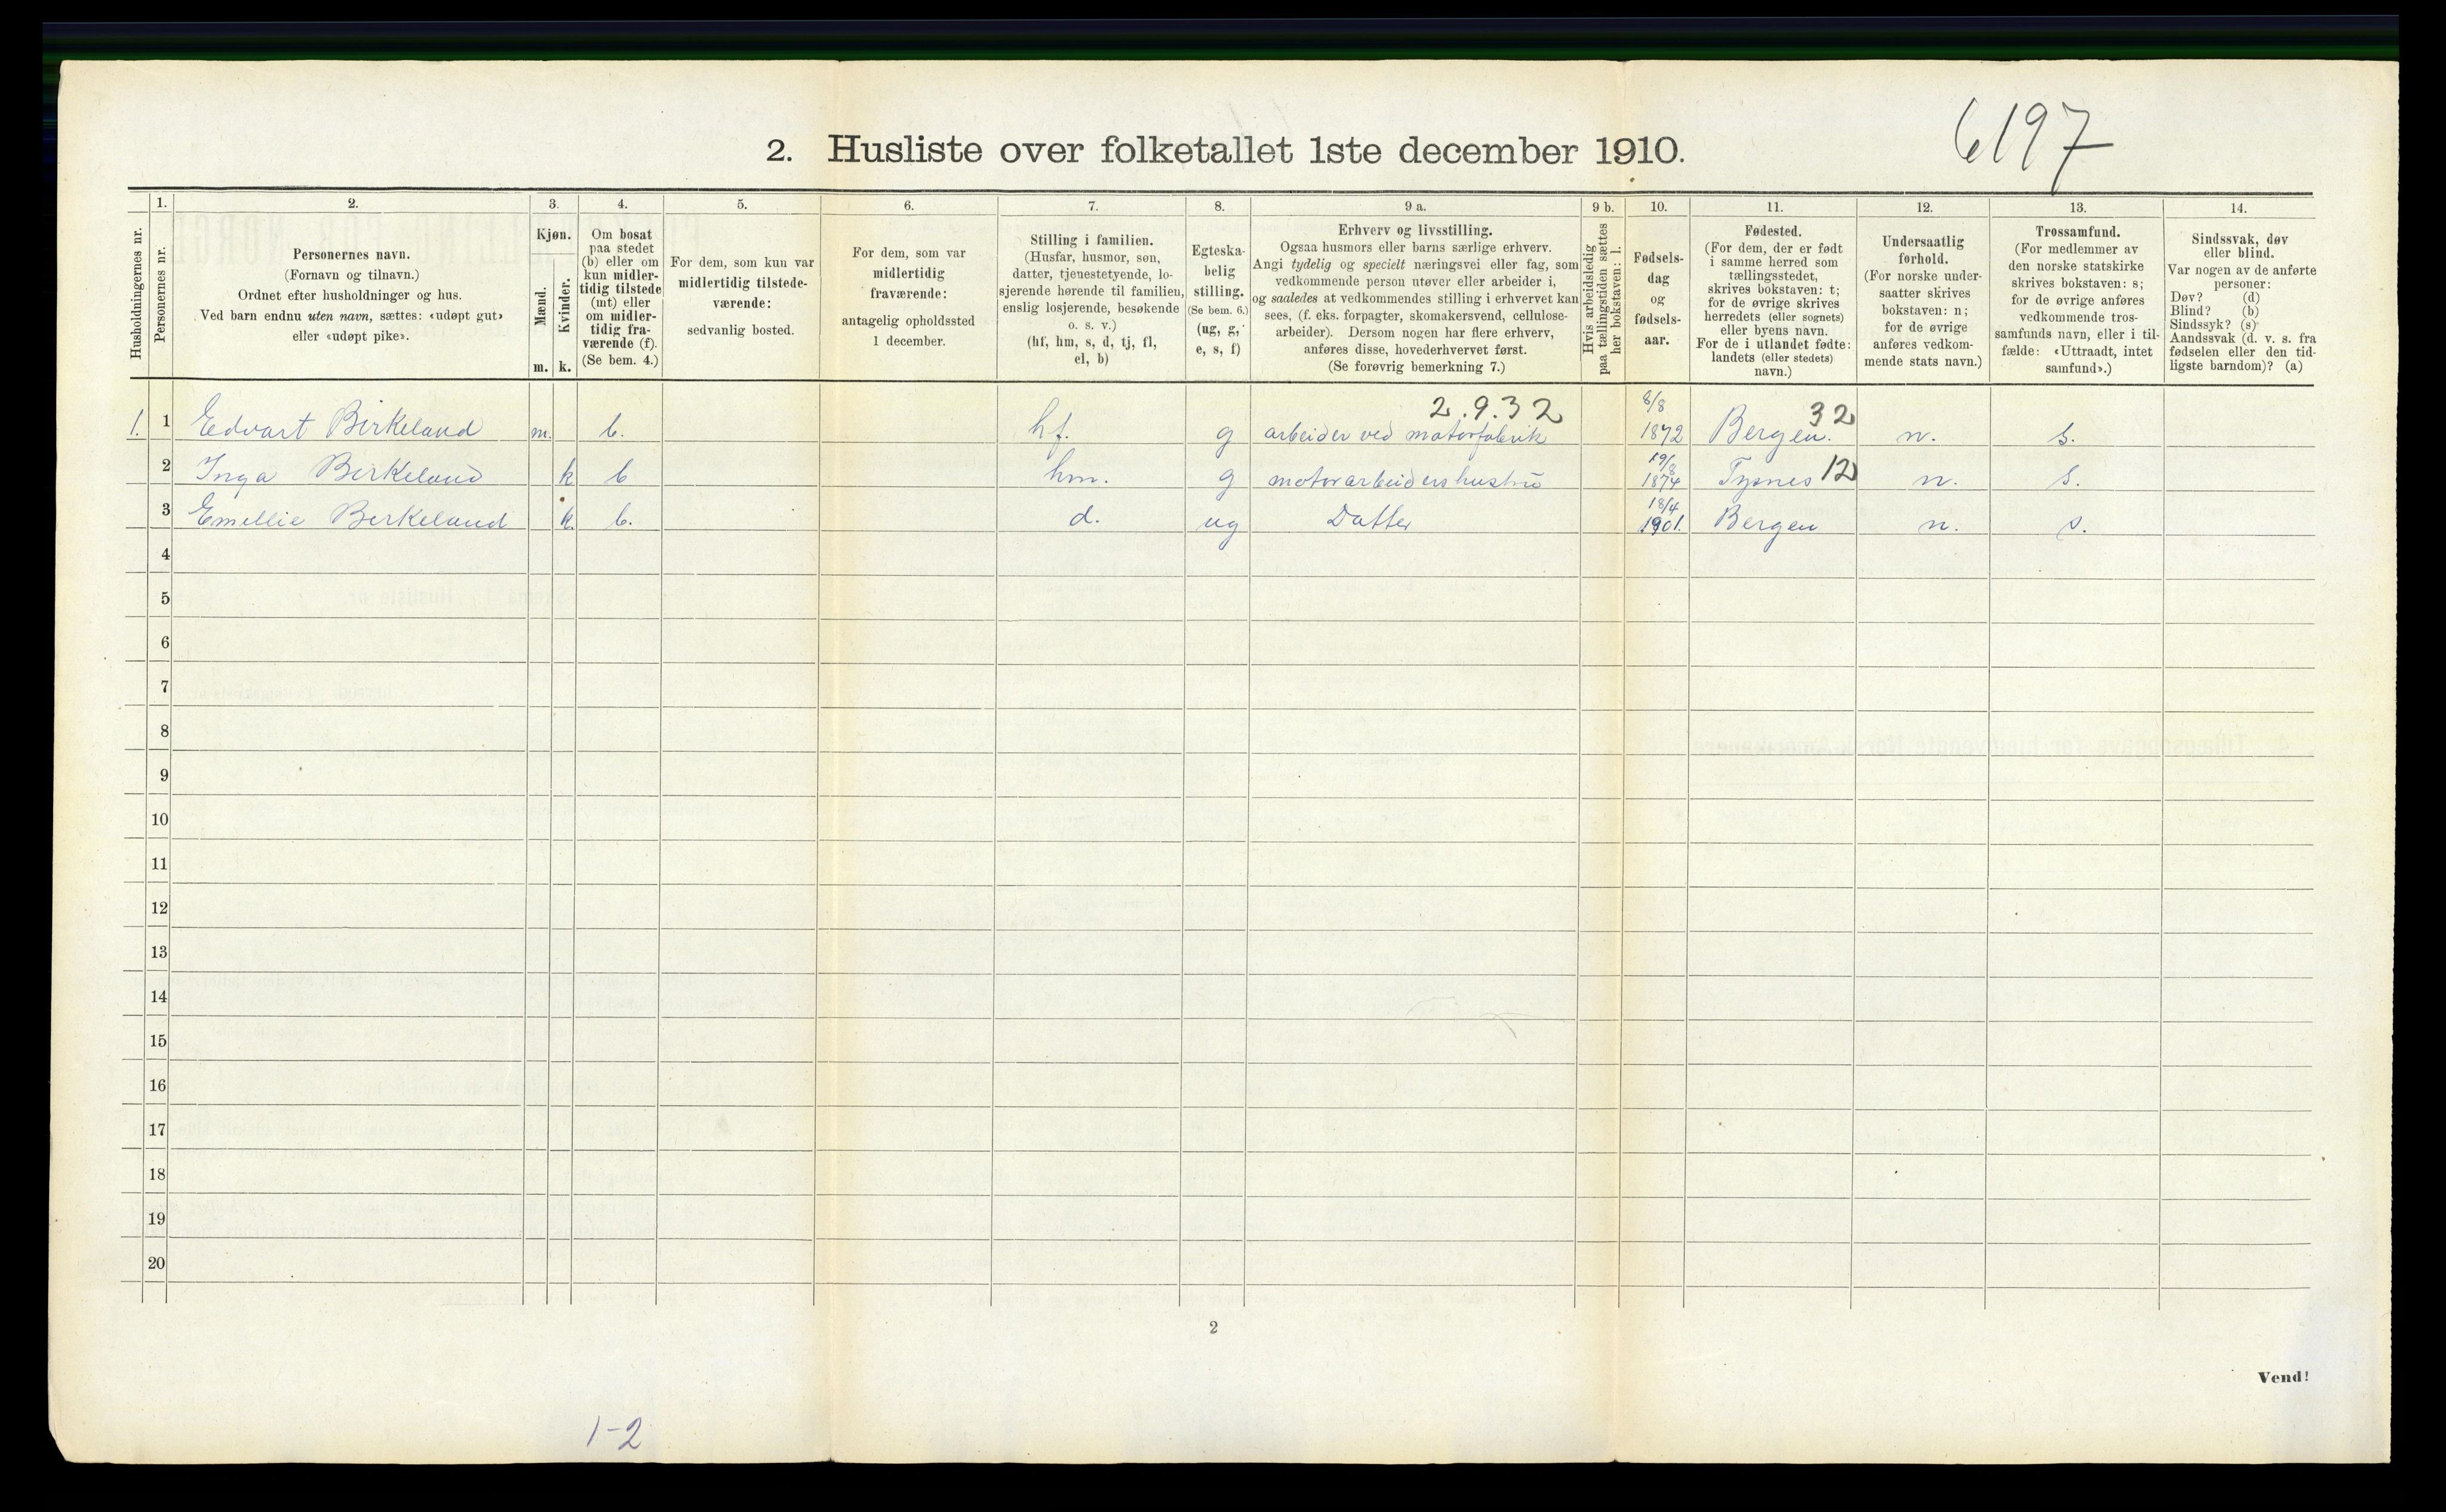 6197
2. Husliste over folketallet 1ste december 1910.
Husholdningernes nr.
1.
Personernes nr.
2.
Personernes navn.
(Fornavn og tilnavn.)
Ordnet efter husholdninger og hus.
Ved barn endnu uten navn, sættes: «udøpt gut»
eller «udøpt pike».
3.
Kjøn.
Mænd.
Kvinder.
m. k.
4.
Om bosat
paa stedet
(b) eller om
kun midler-
tidig tilstede
(mt) eller
om midler-
tidig fra-
værende (f).
(Se bem. 4.)
5.
For dem, som kun var
midlertidig tilstede-
værende:
sedvanlig bosted.
6.
For dem, som var
midlertidig
fraværende:
antagelig opholdssted
1 december.
7.
Stilling i familien.
(Husfar, husmor, søn,
datter, tjenestetyende, lo-
sjerende hørende til familien,
enslig losjerende, besøkende
o. s. v.)
(hf, hm, s, d, tj, fl,
el, b)
8.
Egteska-
belig
stilling.
(Se bem. 6.)
(ug, g,
e, s, f)
9 a.
Erhverv og livsstilling.
Ogsaa husmors eller barns særlige erhverv.
Angi tydelig og specielt næringsvei eller fag, som
vedkommende person utøver eller arbeider i,
og saaledes at vedkommendes stilling i erhvervet kan
sees, (f. eks. forpagter, skomakersvend, cellulose-
arbeider). Dersom nogen har flere erhverv,
anføres disse, hovederhvervet først.
(Se forøvrig bemerkning 7.)
9 b.
Hvis arbeidsledig
paa tællingstiden sættes
her bokstaven: l.
10.
Fødsels-
dag
og
fødsels-
aar.
11.
Fødested.
(For dem, der er født
i samme herred som
tællingsstedet,
skrives bokstaven: t;
for de øvrige skrives
herredets (eller sognets)
eller byens navn.
For de i utlandet fødte:
landets (eller stedets)
navn.)
12.
Undersaatlig
forhold.
(For norske under-
saatter skrives
bokstaven: n;
for de øvrige
anføres vedkom-
mende stats navn.)
13.
Trossamfund.
(For medlemmer av
den norske statskirke
skrives bokstaven: s;
for de øvrige anføres
vedkommende tros-
samfunds navn, eller i til-
fælde: «Uttraadt, intet
samfund».)
14.
Sindssvak, døv
eller blind.
Var nogen av de anførte
personer:
Døv? (d)
Blind? (b)
Sindssyk? (s)
Aandssvak (d. v. s. fra
fødselen eller den tid-
ligste barndom)? (a)
2.9.32 8/8 32
1. 1 Edvart Birkeland m. b. hf. g arbeider ved motorfabrik 1872 Bergen. n. s.
19/8 12
2 Inga Birkeland k b hm. g motorarbeiders hustru 1874 Tysnes n. s.
18/4
3 Emellie Berkeland k. b. d. ug Datter 1901. Bergen n. s.
4
5
6
7
8
9
10
11
12
13
14
15
16
17
18
19
20
2
Vend!
1-2